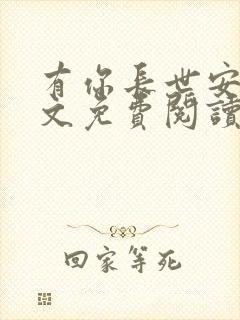 有你長世安
文免費閱讀
回家等死